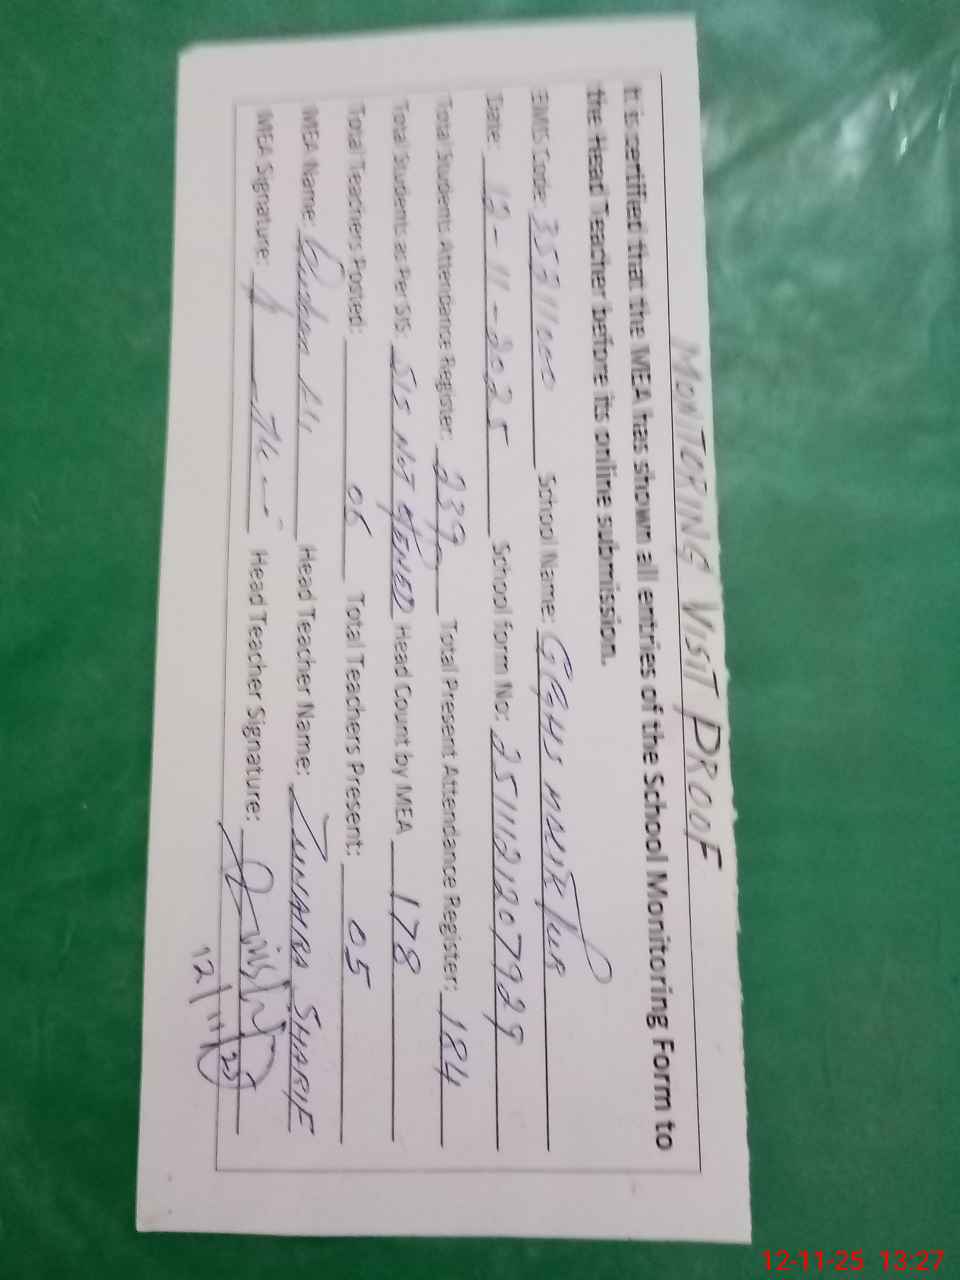 MONITORING VISIT PROOF
It is certified that the MEA has shown all entries of the School Monitoring Form to
the Head Teacher before its online submission.
EMIS Code: School Name: GGHS
Date: 12-11-2025 School form No: 2511121207929
Total Students Attendance Register: 239 Total Present Attendance Register: 184
Total Students as Per SIS: SIS NOT Head Count by MEA 178
Total Teachers Posted: 05 Total Teachers Present: 05
MEA Name: Head Teacher Name: ZUNAIRA SHARIF
MEA Signature: Head Teacher Signature:
12/11/25
12-11-25 13:27